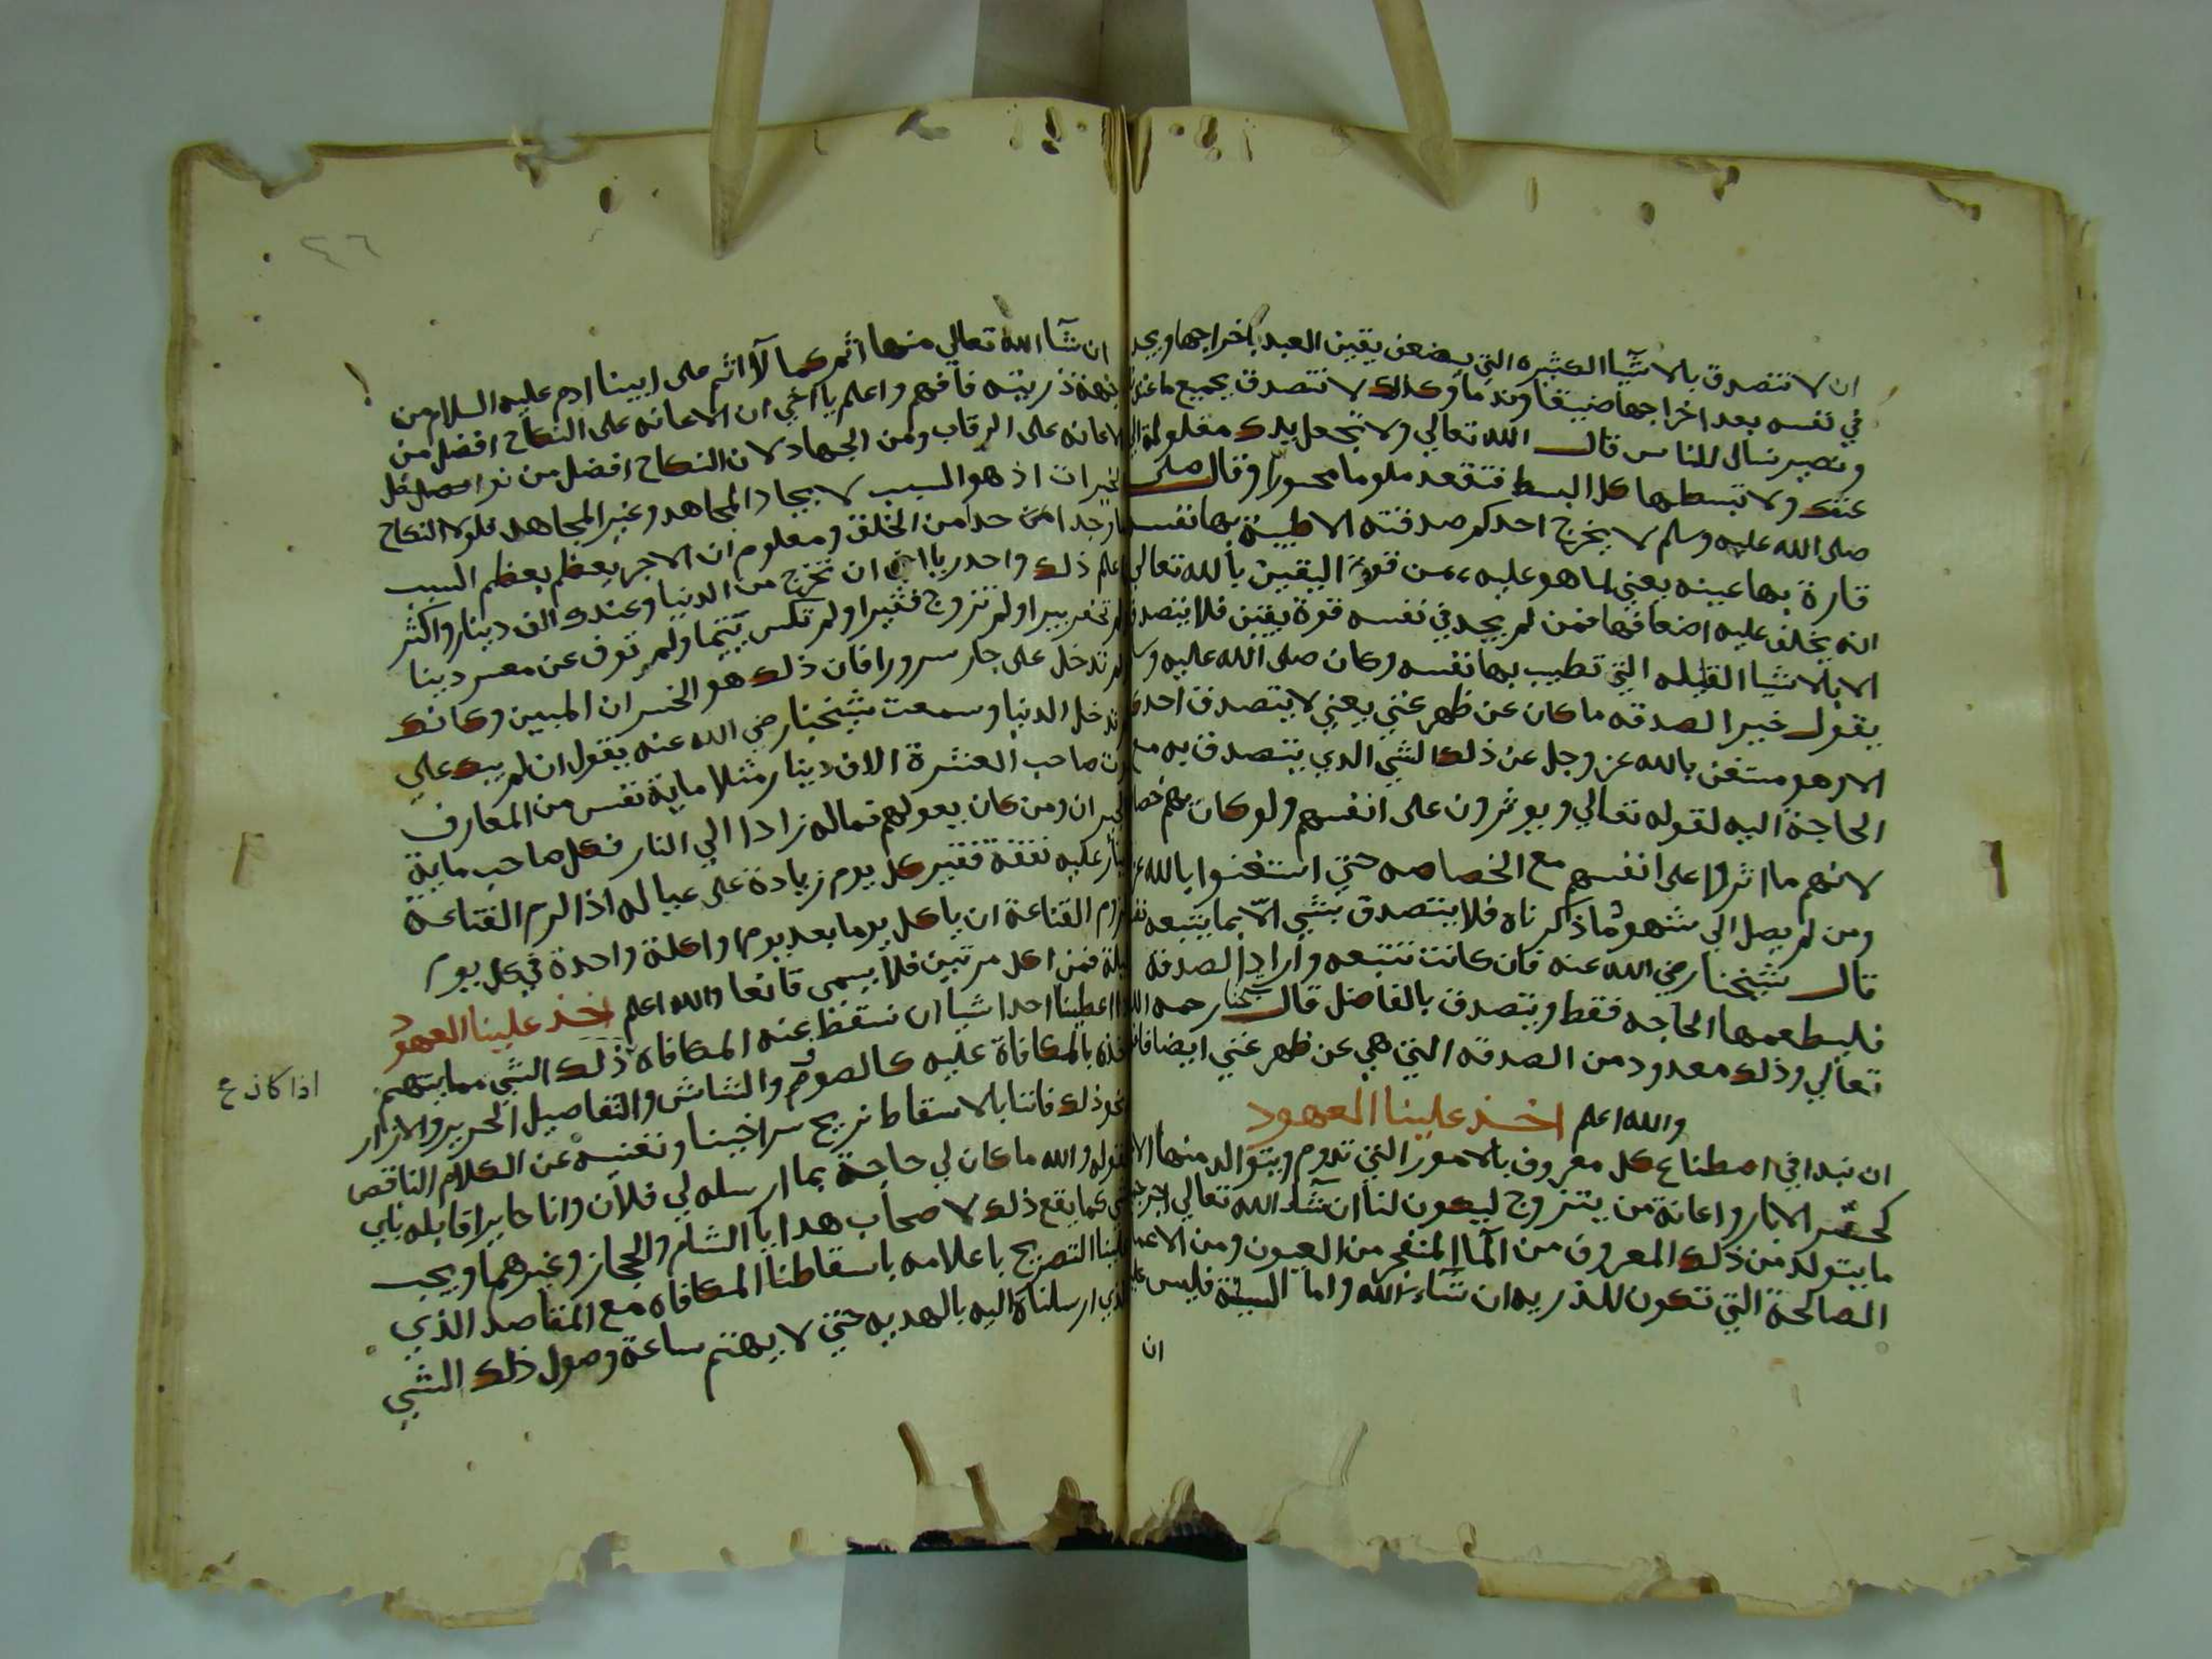 ان لا نتصدق بالاشيآ الكثيره التي يضعف يقين العبد باخراجها ويجد
في نفسه بعد اخراجها ضيقا وندما وكذلك لا نتصدق بجميع ما عندنا
ونصير نسال للناس قال الله تعالي ولا تجعل يدك مغلولة الي
عنقك ولا تبسطها كل البسط فتقعد ملوما محسورا وقال
صلى الله عليه وسلم لا يخرج احدكم صدقته الا طيبة بها نفسه
قارة بها عينه يعني لما هو عليه من قوة اليقين بالله تعالي
انه يخلف عليه اضعافها فمن لم يجد في نفسه قوة يقين فلا يتصدق
الا بالاشيا القليله التي تطيب بها نفسه وكان صلى الله عليه
يقول خير الصدقه ما كان عن ظهر غني يعني لا يتصدق احدكم
الا وهو مستغن بالله عز وجل عن ذلك الشي الدي يتصدق به مع
الحاجة اليه لقوله تعالي ويوثرون على انفسهم ولو كان بهم خصا
لانهم ما اثروا على انفسهم مع الخصاصه حتي استغنوا بالله
ومن لم يصل الي شهود ما ذكرناه فلا يتصدق بشي الا بما يتبعه
قال شيخنا رضي الله عنه فان كانت تتبعه واراد الصدقة
فليطعمها الحاجه فقط ويتصدق بالفاضل قال شيخنا رحمه الله
تعالي وذلك معدود من الصدقه التي هي عن ظهر غني ايضا
والله اعلم اخذ علينا العهود
ان نبدا في اصطناع كل معروف بالامور التي تدوم ويتوالد منها
كحفر الابار واعانة من يتزوج ليكون لنا ان شآ الله تعالي اجر
ما يتولد من ذلك المعروف من المآ المنفجر من العيون ومن الاعمال
الصالحة التي تكون للذريه ان شآء الله واما السيئة فليس
ان
٤٦
ان شآ الله تعالي منها اثم كما لا اثم على ابينا ادم عليه السلام من
جهة ذريته فافهم واعلم يا اخي ان الاعانه على النكاح افضل من
الاعانه على الرقاب ومن الجهاد لان النكاح افضل من
الخيرات اذ هو السبب لايجاد المجاهد وغير المجاهد فلولا النكاح
ما وجد احد من الخلق ومعلوم ان الاجر يعظم بعظم السبب
اعلم ذلك واحدر يا اخي ان تخرج من الدنيا وعندك الف دينار واكثر
لم تحفر بيرا ولم تزوج فقيرا ولم تكس يتيما ولم توف عن معسر دينا
لم تدخل على جار سرورا فان ذلك هو الخسران المبين وكانك
لم تدخل الدنيا وسمعت شيخنا رضي الله عنه يقول ان لم يبك علي
صاحب العشرة الاف دينار مثلا ماية نفس من المعارف
الجيران ومن كان يعولهم فماله زادا الي النار فعلى صاحب ماية
دينار عليه نفقة فقير كل يوم زيادة على عياله اذا لزم القناعة
لزوم القناعة ان ياكل يوما بعد يوم او اكلة واحدة في كل يوم
ليلة فمن اكل مرتين فلا يسمي قانعا والله اعلم اخذ علينا العهود
اذا اعطينا احدا شيا ان نسقط عنه المكافاه ذلك الشي مما يتهم
اذا كان ع
اخذه بالمكافاة عليه كالصوف والشاش والتفاصيل الحرير والازار
نحو ذلك فاننا بالاسقاط نريح سر اخينا ونفسه عن الكلام الناقص
كقوله والله ما كان لي حاجة بما ارسله لي فلان وانا حاير اقابله باي
شي كما يقع ذلك لاصحاب هدايا الشام والحجاز وغيرهما ويجب
علينا التصريح باعلامه باسقاطنا المكافاه مع القاصد الذي
الذي ارسلناه اليه بالهديه حتي لا يهتم ساعة وصول ذلك الشي